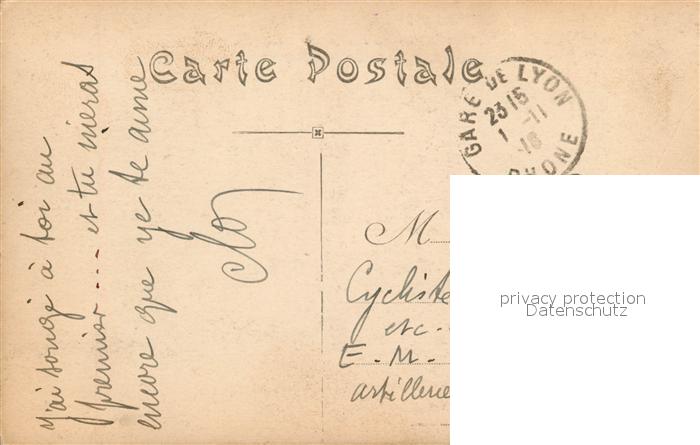 Carte Postale
GARE DE LYON
23 15
1 -11
16
RHONE
j'ai songé à toi au
premier ... et tu nieras
encore que je te aime
Clo
M
Cycliste
etc.
E. M.
artillerie
privacy protection
Datenschutz